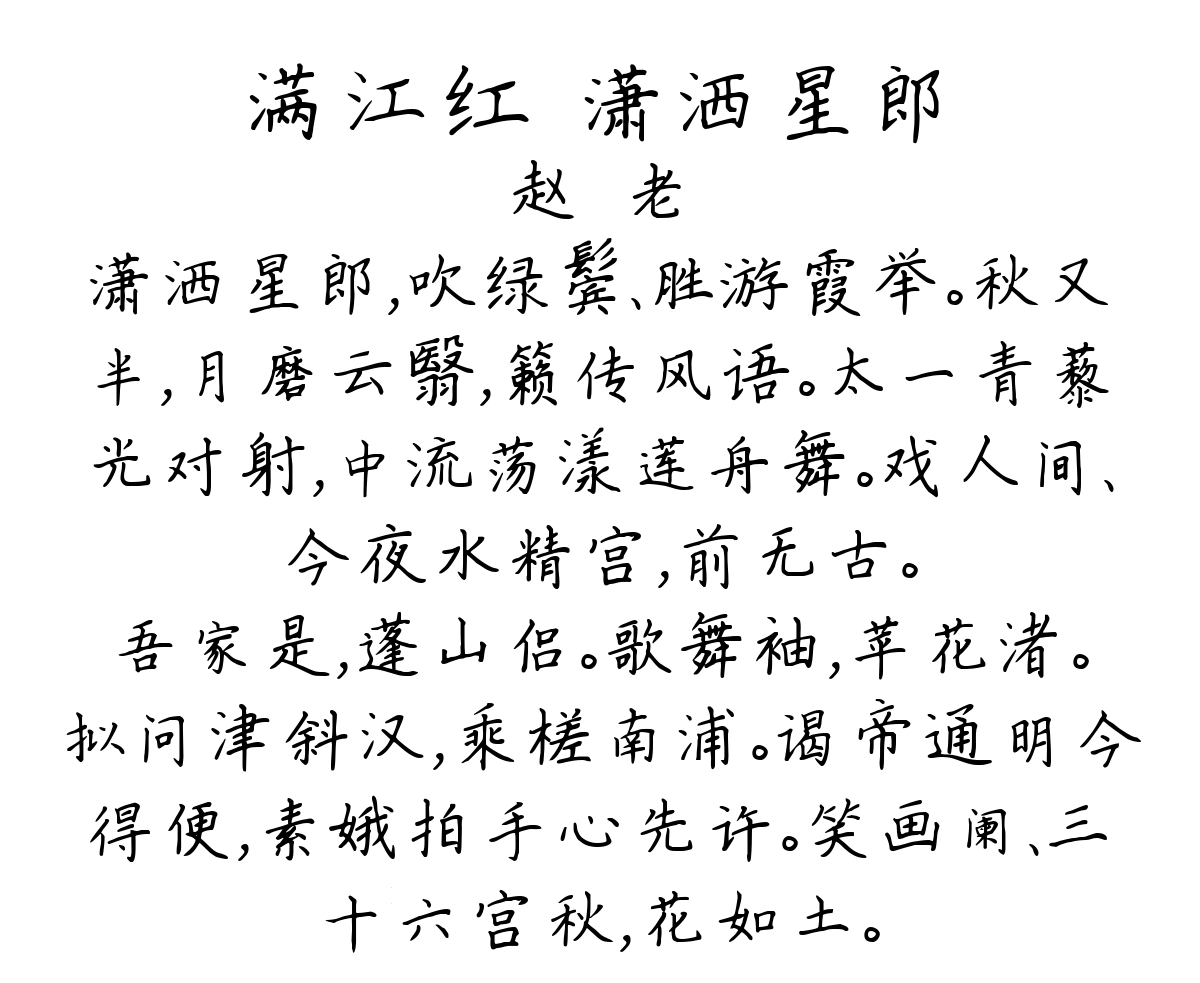 满江红 潇洒星郎
赵 老
潇洒星郎,吹绿鬓、胜游霞举。秋又
半,月磨云翳,籁传风语。太一青藜
光对射,中流荡漾莲舟舞。戏人间、
今夜水精宫,前无古。
吾家是,蓬山侣。歌舞袖,苹花渚。
拟问津斜汉,乘槎南浦。谒帝通明今
得便,素娥拍手心先许。笑画阑、三
十六宫秋,花如土。